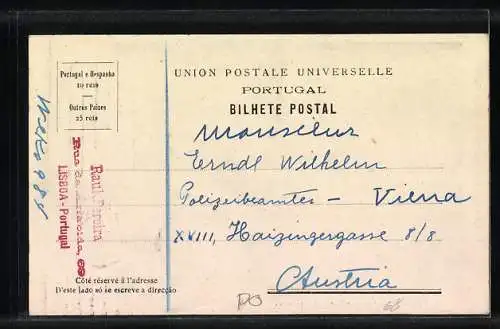 Portugal e Hespanha
10 reis
Outros Paizes
25 reis
UNION POSTALE UNIVERSELLE
PORTUGAL
BILHETE POSTAL
Monsieur
Erndl Wilhelm
Polizeibeamter - Viena
XVIII, Haizingergasse 8/8
Austria
Raul Pereira
Rua da 69
LISBOA - Portugal
Côté réservé à l'adresse
D'este lado só se escreve a direcção